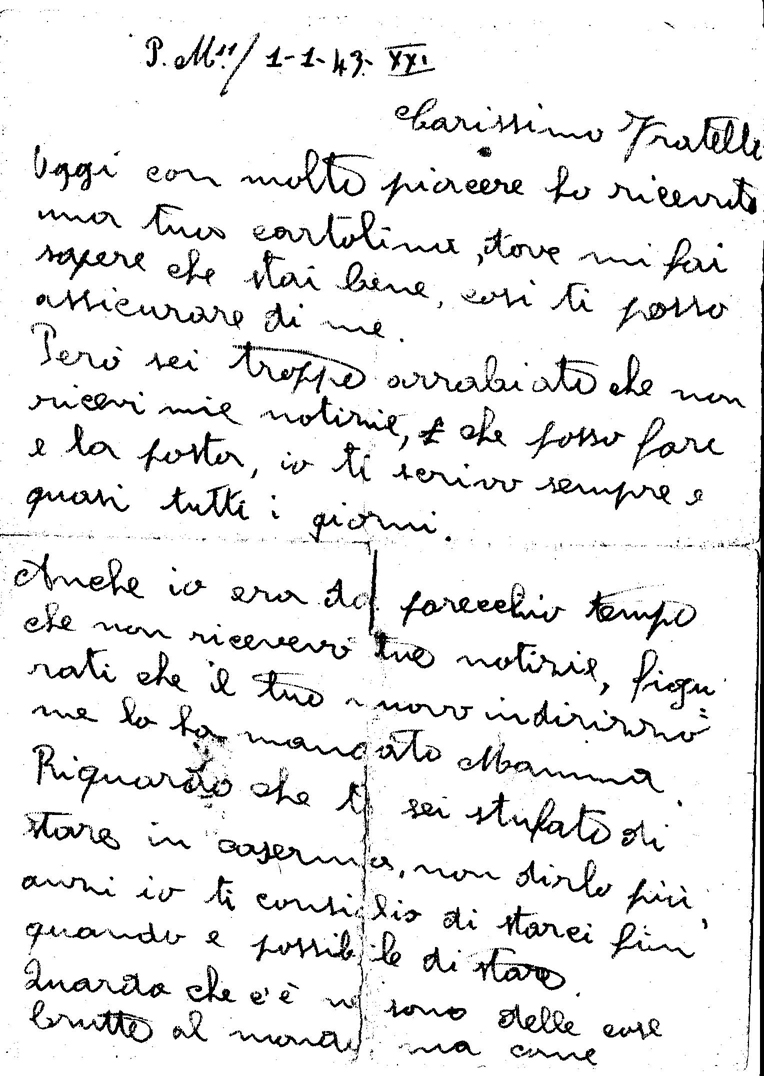 P. M. 11/ 1-1-43- XXI
Carissimo Fratello
Oggi con molto piacere ho ricevuto
una tua cartolina, dove mi fai
sapere che stai bene, cosi ti posso
assicurare di me.
Però sei troppo arrabiato che non
ricevi mie notizie, che posso fare
e la posta, io ti scrivo sempre e
quasi tutti i giorni.
Anche io era da parecchio tempo
che non ricevevo tue notizie, figu
rati che il tuo nuovo indirizzo
me lo ha mandato Mamma.
Riguardo che ti sei stufato di
stare in caserma, non dirlo più,
anzi io ti consiglio di starci fin
quando e possibile di stare.
Guarda che c'è ne sono delle cose
brutte al mondo, ma come